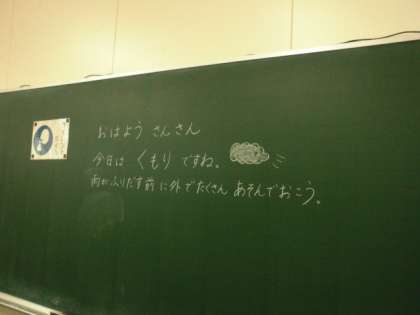 おはよう さんさん
今日は くもり ですね。
雨がふりだす前に外でたくさん あそんでおこう。